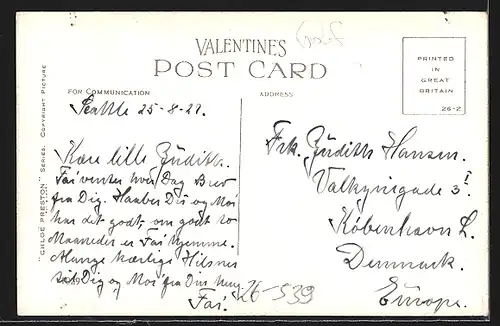 Golf
VALENTINES
POST CARD
PRINTED
IN
GREAT
BRITAIN
26-Z
FOR COMMUNICATION
ADDRESS
"CHLOË PRESTON" SERIES. COPYRIGHT PICTURE
Seattle 25-8-27.
Kære lille Jüdith.
Fai venter hver Dag Brev
fra Dig. Haaber Du og Moi
har det godt, om godt to
Maaneder er Fai hjemme.
Mange kærlige Hilsner
til Dig og Moi fra Din
Fai.
26-539
Frk. Jüdith Hansen.
Valkyriegade 3 I
København L.
Denmark.
Europe.